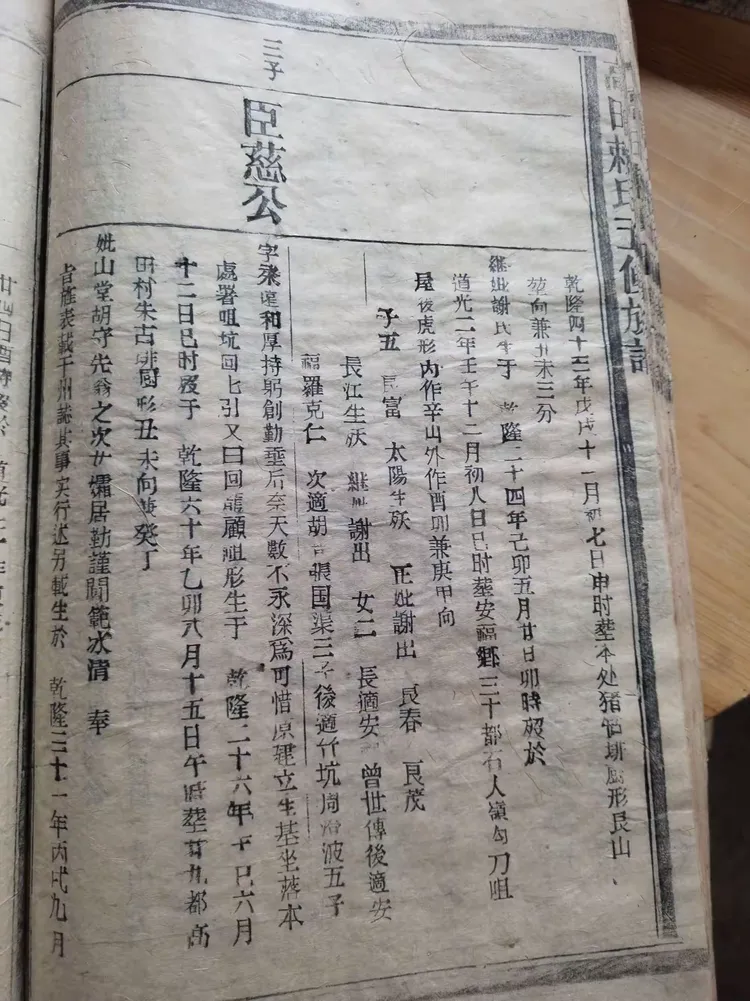 氏五修族譜
乾隆四十三年戊戌十一月初七日申时塟本处猪形艮山
堃向兼丑未三分
継妣謝氏生于 乾隆二十四年己卯五月廿日卯時殁於
道光二年壬午十二月初八日巳时塟安福鄉三十都石人嶺勾刀咀
屋後虎形內作辛山外作酉卯兼庚甲向
子五 長富 太陽生殀 正妣謝出 良春 良茂
長江生殀 継妣謝出 女二 長適安 曾世傳後適安
福羅克仁 次適胡 張国渠三子後適竹坑周 波五子
字 和厚持躬創勤垂后奈天數不永深爲可惜原建立生基坐落本
處署咀坑回七引又曰回龍顧咀形生于 乾隆二十六年辛巳六月
十二日巳时殁于 乾隆六十年乙卯八月十五日午時塟廿九都高
田村朱古排 形丑未向兼癸丁
三子
臣慈公
妣山堂胡守先翁之次女孀居勤謹閫範冰清 奉
旨旌表載于州誌其事实行述另載生於 乾隆三十一年丙戌九月
廿四日酉時